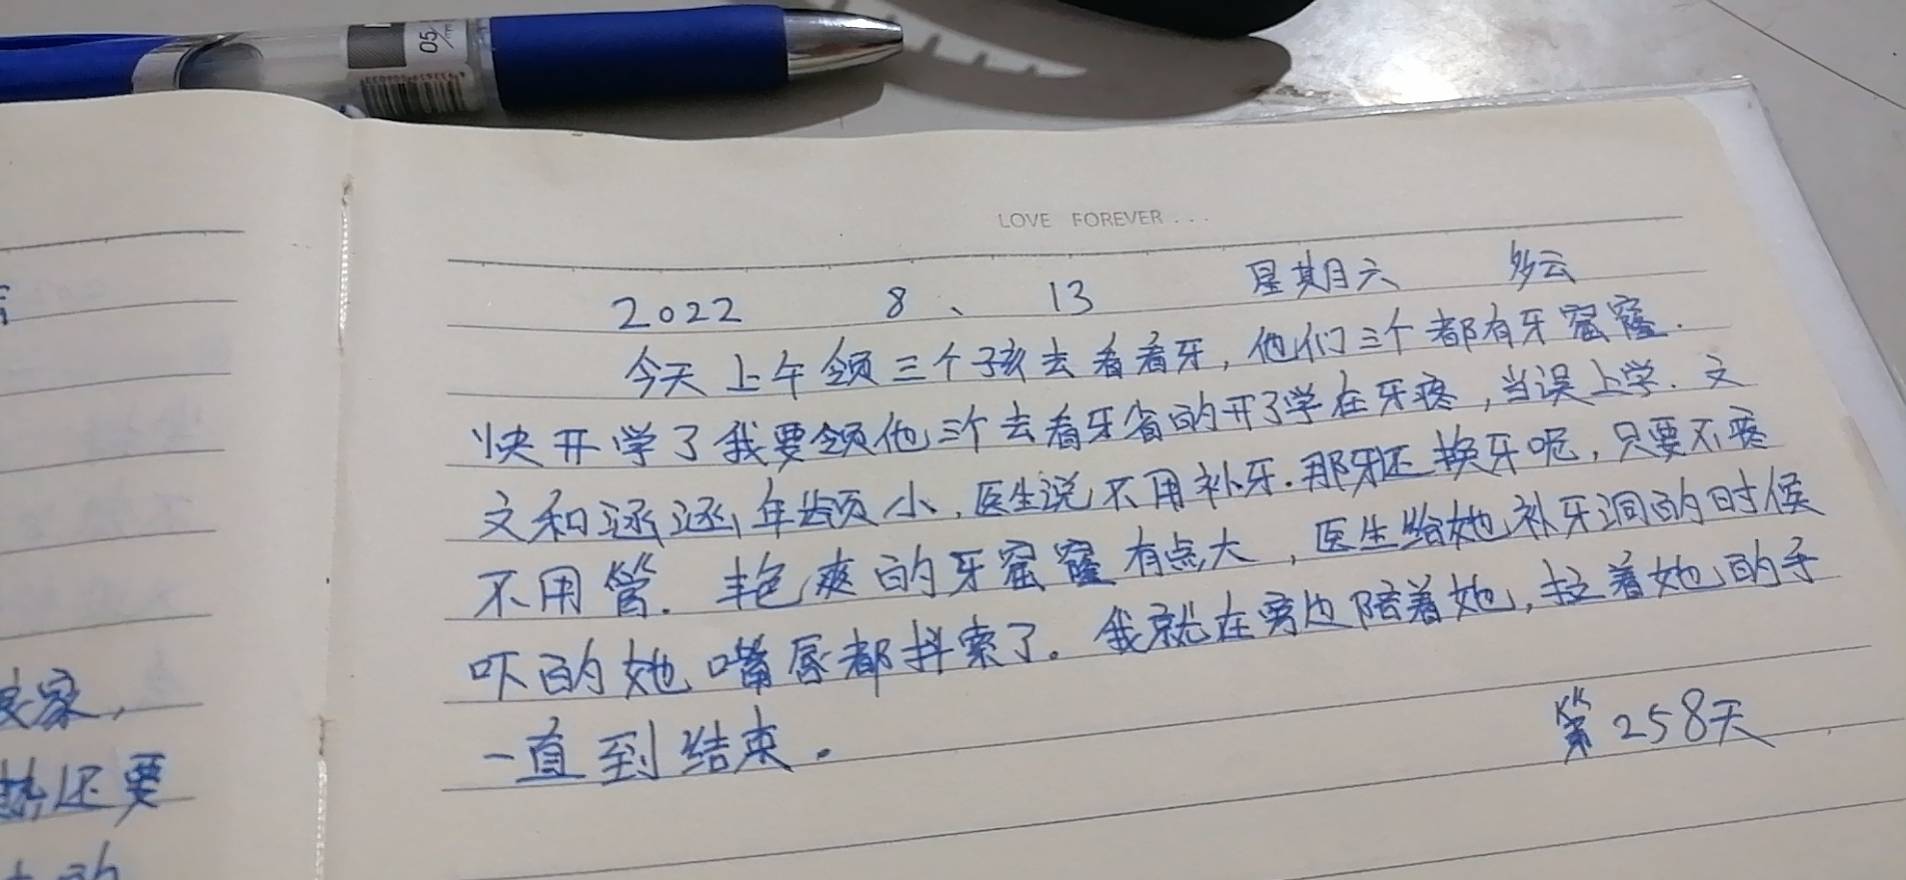 05
LOVE FOREVER...
2022 8、 13 星期六 多云
今天上午领三个孩去看看牙，他们三个都有牙窟窿.
快开学了我要领他三个去看牙省的开了学在牙疼，当误上学.文
文和涵涵年龄小.医生说不用补牙.那牙还换牙呢，只要不疼
不用管.艳爽的牙窟窿有点大，医生给她补牙洞的时候
吓的她嘴唇都抖索了。我就在旁边陪着她，拉着她的手
一直到结束。
第258天
家，
热还要
的